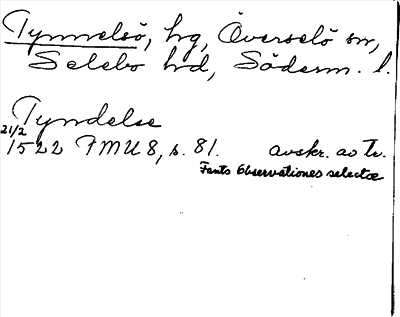 Tynnelsö, hg, Överselö sn,
Selebo hd, Söderm. l.
Tyndelse
21/2
1522 FMU 8, s. 81. avskr. av Tr.
Fants Observationes selectæ